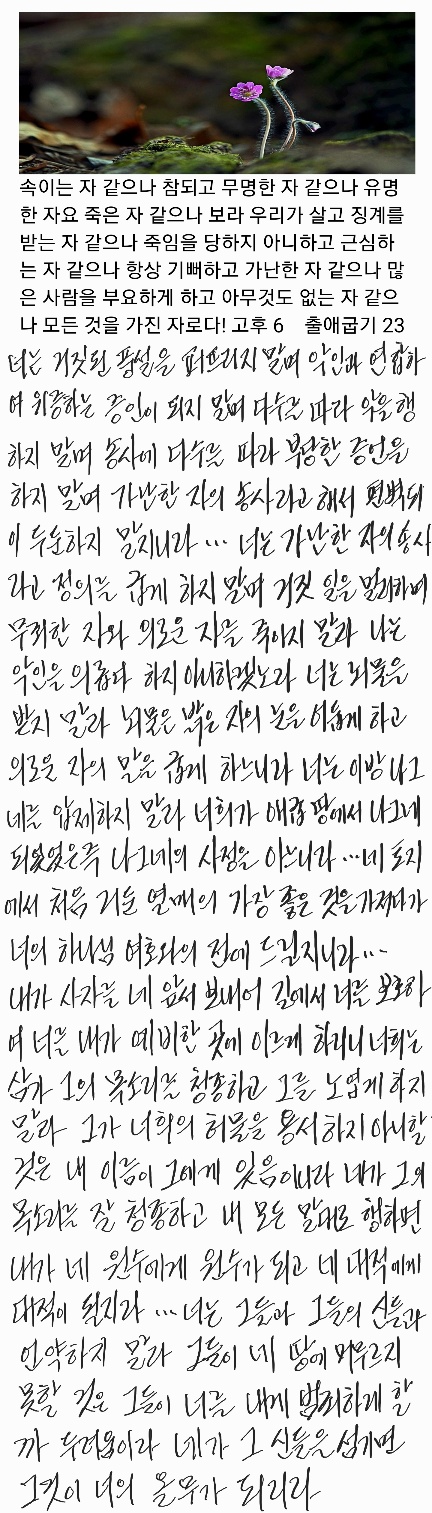 속이는 자 같으나 참되고 무명한 자 같으나 유명
한 자요 죽은 자 같으나 보라 우리가 살고 징계를
받는 자 같으나 죽임을 당하지 아니하고 근심하
는 자 같으나 항상 기뻐하고 가난한 자 같으나 많
은 사람을 부요하게 하고 아무것도 없는 자 같으
나 모든 것을 가진 자로다! 고후 6 출애굽기 23
너는 거짓된 풍설을 퍼뜨리지 말며 악인과 연합하
여 위증하는 증인이 되지 말며 다수를 따라 악을 행
하지 말며 송사에 다수를 따라 부당한 증언을
하지 말며 가난한 자의 송사라고 해서 편벽되
이 두둔하지 말지니라 ... 너는 가난한 자의 송사
라고 정의를 굽게 하지 말며 거짓 일을 멀리하며
무죄한 자와 의로운 자를 죽이지 말라 나는
악인을 의롭다 하지 아니하겠노라 너는 뇌물을
받지 말라 뇌물은 밝은 자의 눈을 어둡게 하고
의로운 자의 말을 굽게 하느니라 너는 이방 나그
네를 압제하지 말라 너희가 애굽 땅에서 나그네
되었었은즉 나그네의 사정을 아느니라 ... 네 토지
에서 처음 거둔 열매의 가장 좋은 것을 가져다가
너의 하나님 여호와의 전에 드릴지니라 ...
내가 사자를 네 앞서 보내어 길에서 너를 보호하
여 너를 내가 예비한 곳에 이르게 하리니 너희는
삼가 그의 목소리를 청종하고 그를 노엽게 하지
말라 그가 너희의 허물을 용서하지 아니할
것은 내 이름이 그에게 있음이니라 네가 그의
목소리를 잘 청종하고 내 모든 말대로 행하면
내가 네 원수에게 원수가 되고 네 대적에게
대적이 될지라 ... 너는 그들과 그들의 신들과
언약하지 말라 그들이 네 땅에 머무르지
못할 것은 그들이 너를 내게 범죄하게 할
까 두려움이라 네가 그 신들을 섬기면
그것이 너의 올무가 되리라